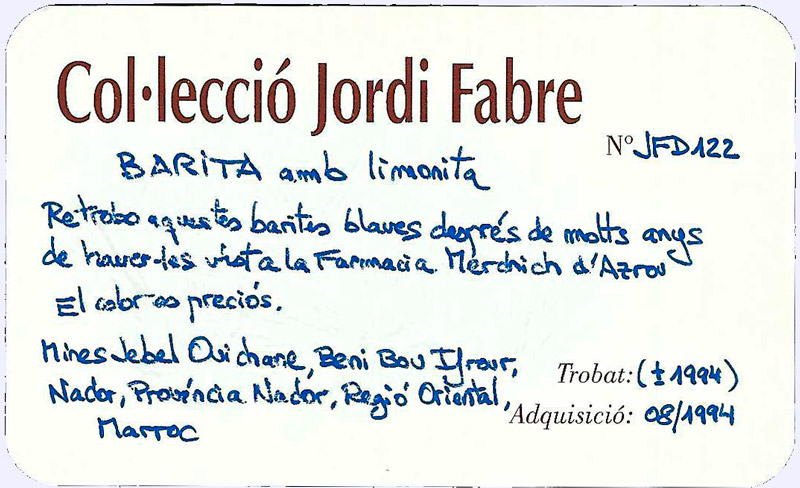 Col·lecció Jordi Fabre
Nº JFD122
BARITA amb limonita
Retrobo aquestes barites blaves després de molts anys
de haver-les vist a la Farmacia Merchich d'Azrou
El color es preciós.
Mines Jebel Ouichane, Beni Bou Ifrour,
Nador, Província Nador, Regió Oriental,
Marroc
Trobat: (± 1994)
Adquisició: 08/1994